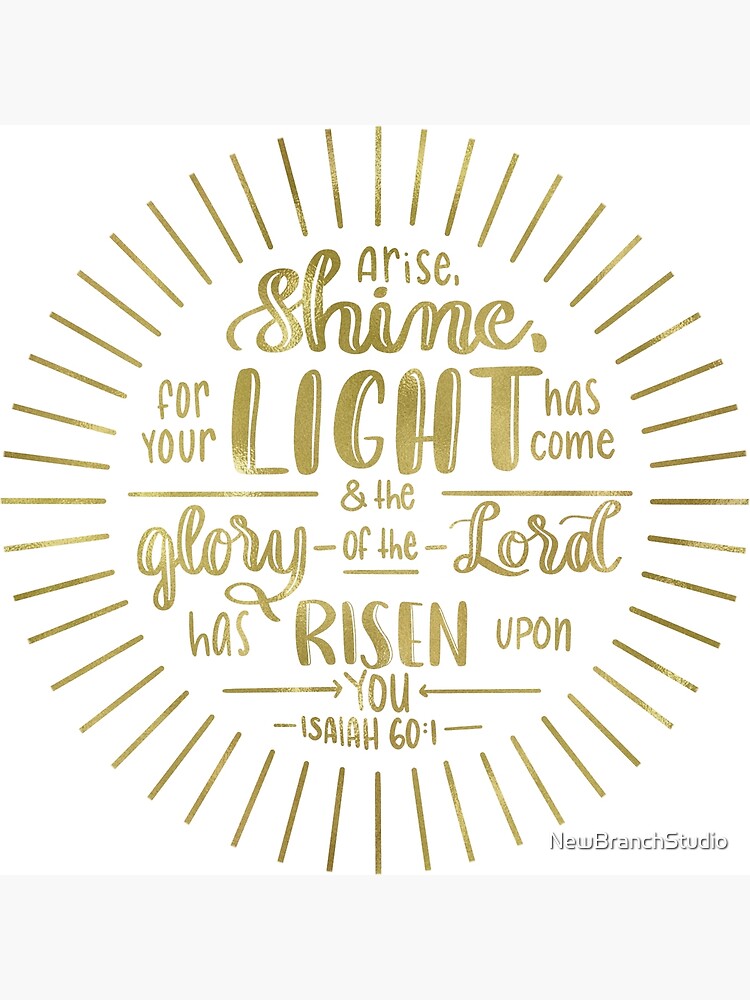 Arise,
Shine,
for your LIGHT has come
& the
glory - of the - Lord
has RISEN upon
YOU
- ISAIAH 60:1 -
NewBranchStudio